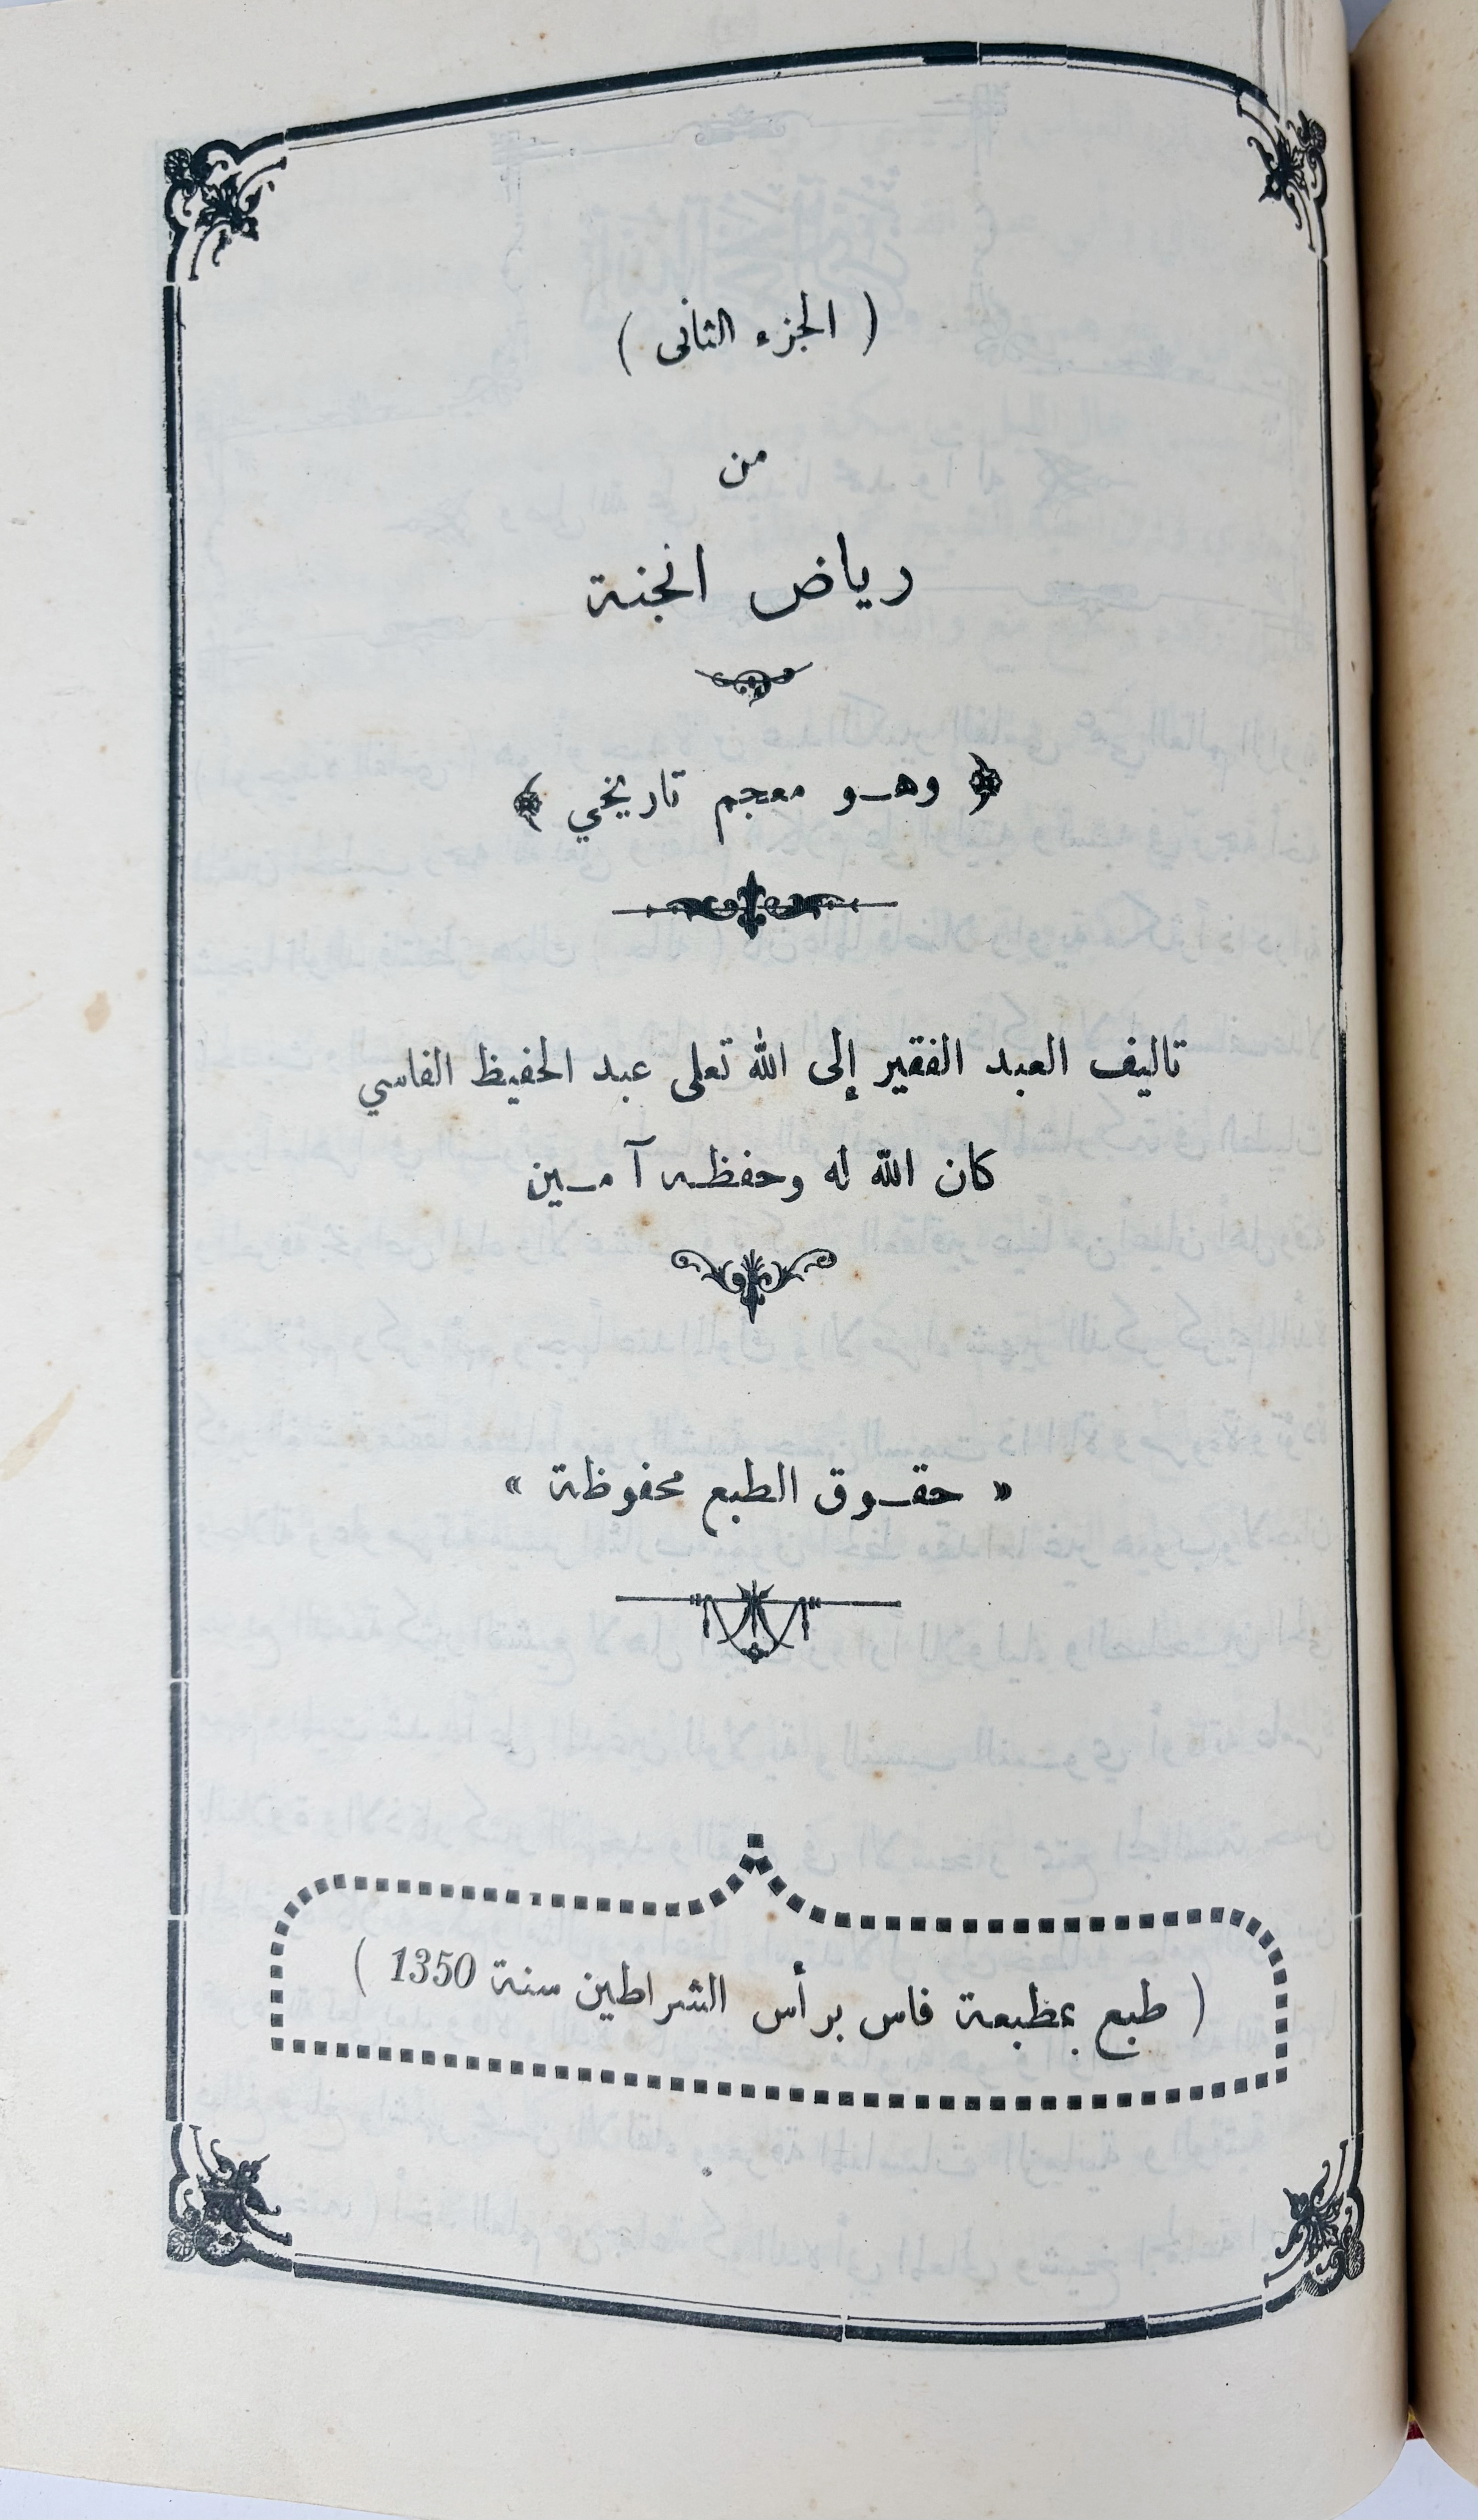 ( الجزء الثانى )
من
رياض الجنة
﴿ وهـو معجم تاريخي ﴾
تاليف العبد الفقير إلى الله تعلى عبد الحفيظ الفاسي
كان الله له وحفظه آمـين
« حقـوق الطبع محفوظة »
( طبع بمطبعة فاس برأس الشراطين سنة 1350 )